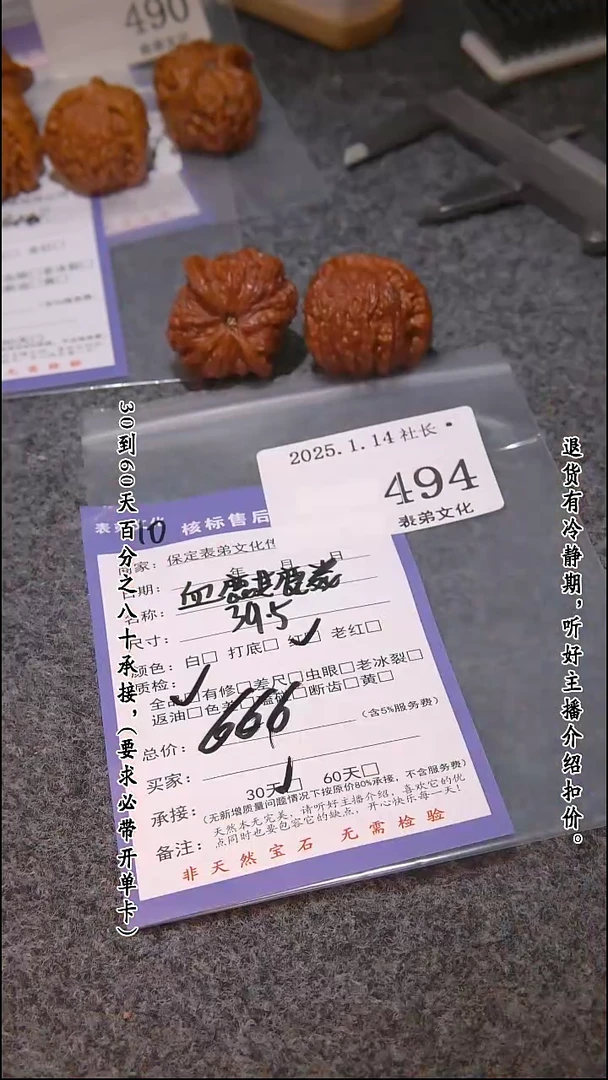 490
30到60天百分之八十承接，（要求必带开单卡）
退货有冷静期，听好主播介绍扣价。
2025.1.14 社长
494
表弟文化
10
核标售后
商家：保定表弟文化
年 月 日
日期：
名称：
尺寸：39.5
颜色：白□ 打底□ 红□ 老红□
质检：
全品□有修□差尺□虫眼□老冰裂□
返油□色差□磕碰□断齿□黄□
总价：666（含5%服务费）
买家：
承接：30天□ 60天□
（无新增质量问题情况下按原价80%承接，不含服务费）
备注：天然本无完美，请听好主播介绍，喜欢它的优
点同时也要包容它的缺点，开心快乐每一天！
非天然宝石 无需检验